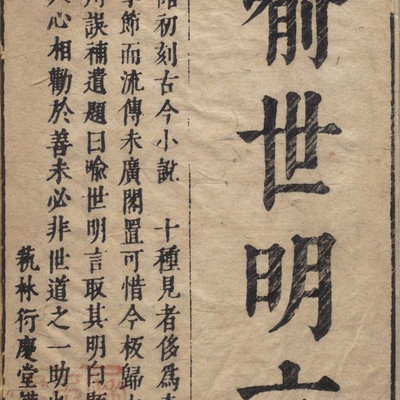 世明
初刻古今小說 十種見者侈為
節而流傳未廣閣置可惜今板歸
誤補遺題曰喻世明言取其明白
心相勸於善未必非世道之一助也
林衍慶堂